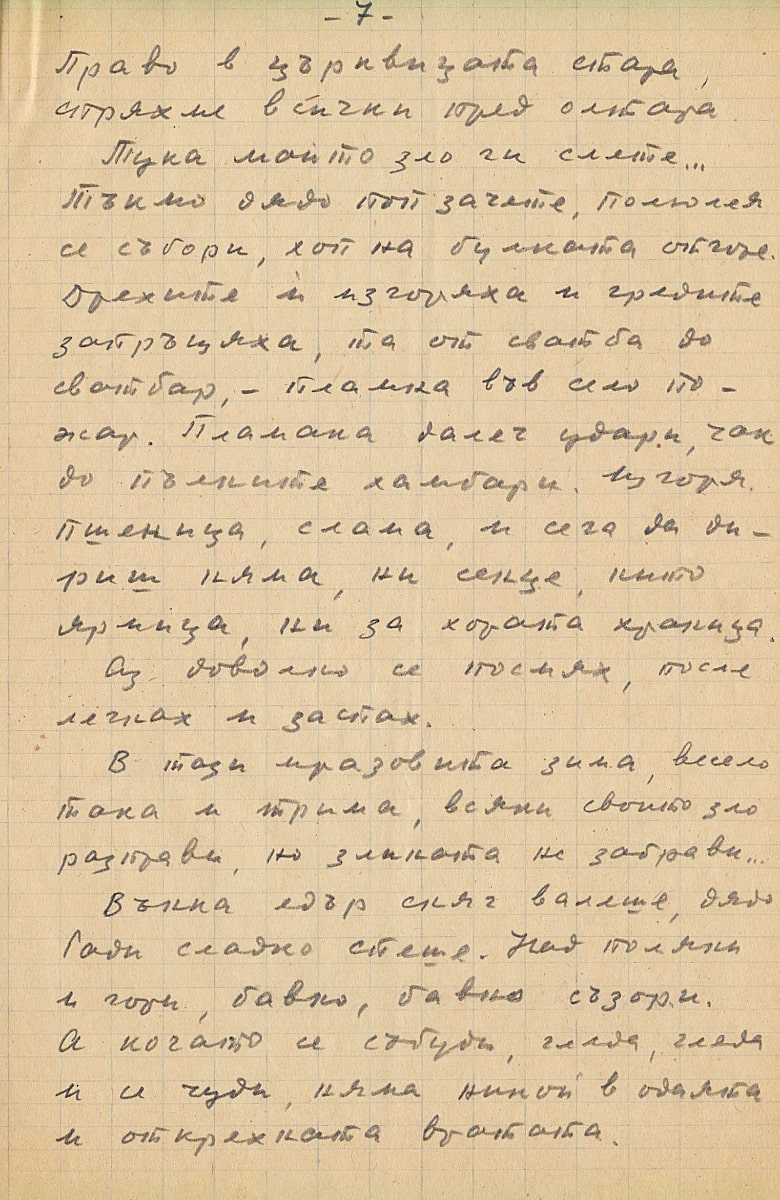 - 7 -
Право в църквицата стара,
спряхме всички пред олтара
Тука мойто зло ги слете...
Тъкмо дядо поп зачете, полюлея
се събори, хоп на булката отгоре.
Дрехите ѝ изгоряха и гредите
запръщяха, та от сватба до
сватбар, - пламна във село по-
жар. Пламъка далеч удари, чак
до пълните хамбари. Изгоря
пшеница, слама, и сега да ди-
риш няма, ни сенце, нито
ярмица, ни за хората храница.
Аз доволно се посмях, после
легнах и заспах.
В тази мразовита зима, весело
така и трима, всяки своито зло
разправи, но злината не забрави...
Вънка едър сняг валеше, дядо
Гади сладко спеше. Над поляни
и гори, бавно, бавно съзори.
А когато се събуди, гледа, гледа
и се чуди, няма никой в одаята
и открехната вратата.